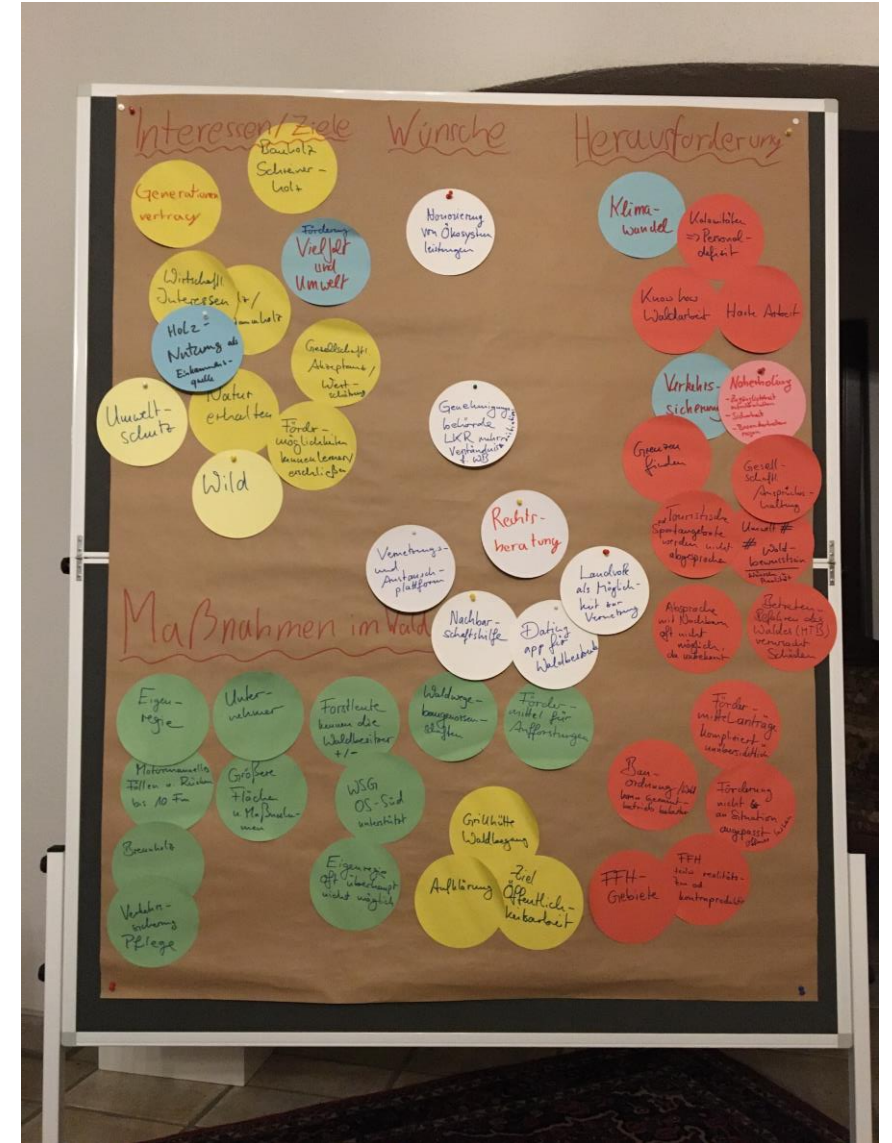 Interessen/Ziele
Wünsche
Herausforderung
Bauholz
Schreiner-
holz
Generationen
vertrag
Förderung
Vielfalt
und
Umwelt
Wirtschaftl.
Interessen
Holz-
Nutzung als
Einkommens-
quelle
Gesellschaftl.
Akzeptanz/
Wert-
schätzung
Umwelt-
schutz
Natur
erhalten
Förder-
möglichkeiten
kennenlernen/
erschließen
Wild
Honorierung
von Ökosystem
leistungen
Genehmigung
behörde
LKR mehr
Verständnis
f. WB
Rechts-
beratung
Vernetzungs-
und
Austausch-
plattform
Landvolk
als Möglich-
keit zur
Vernetzung
Nachbar-
schaftshilfe
Dating
app für
Waldbesitzer
Klima-
wandel
Kalamitäten
=> Personal-
defizit
Know how
Waldarbeit
Harte Arbeit
Verkehrs-
sicherung
Naherholung
- Sicherheit
Grenzen
finden
Gesell-
schaftl.
Anspruchs-
haltung
Touristische
Sportangebote
werden nicht
abgesprochen
Umwelt #
# Wald-
bewusstsein
Absprache
mit Nachbarn
oft nicht
möglich,
da unbekannt
Betreten
Befahren des
Waldes (MTB)
verursacht
Schäden
Förder-
mittelanträge
kompliziert
unübersichtlich
Bau-
ordnung/Wald
kein Gesamt-
betrieb
Förderung
nicht
an Situation
angepasst
FFH-
Gebiete
FFH
teilw. realitäts-
fern od
kontraproduktiv
Maßnahmen im Wald
Eigen-
regie
Unter-
nehmer
Forstleute
kennen die
Waldbesitzer
+/-
Waldwege
baugenossen-
schaften
Förder-
mittel für
Aufforstungen
Motormanuelles
Fällen u. Rücken
bis 10 Fm
Größere
Fläche
n Maßnah-
men
WSG
OS-Süd
unterstützt
Brennholz
Eigenregie
oft überhaupt
nicht möglich
Verkehrs-
sicherung
Pflege
Grillhütte
Waldbegang
Aufklärung
Ziel
Öffentlich-
keitsarbeit